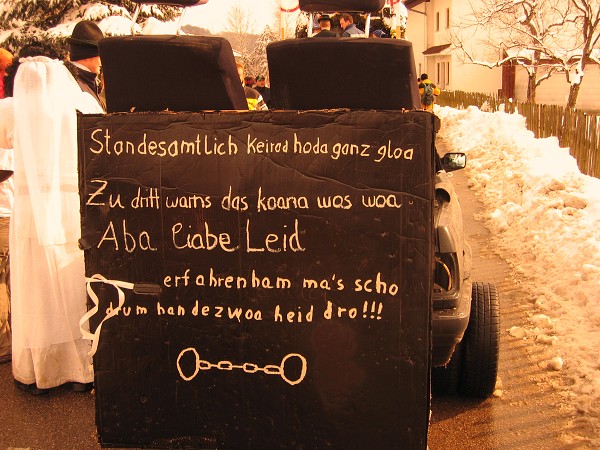 Standesamtlich keirad hoda ganz gloa
Zu dritt warns das koana was woa
Aba liabe Leid
erfahren ham ma's scho
drum han de zwoa heid dro!!!